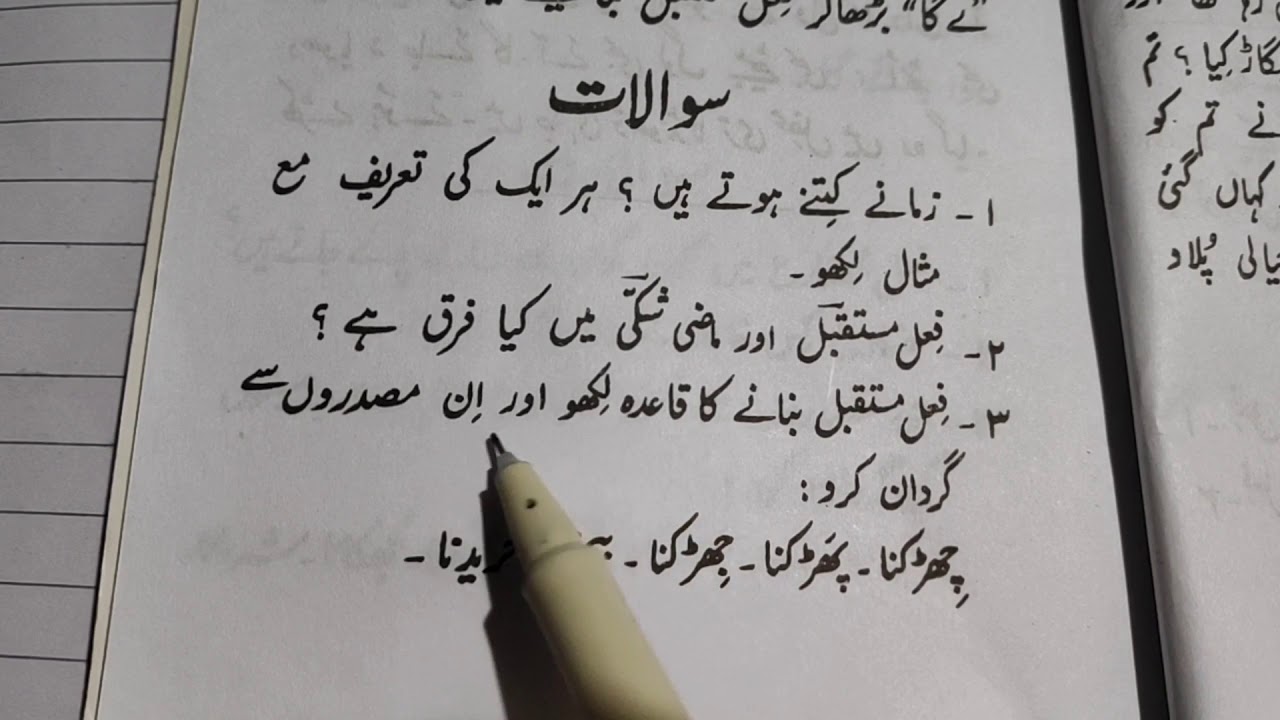 ”ے گا“ بڑھا کر
سوالات
۱۔ زمانے کِتنے ہوتے ہیں ؟ ہر ایک کی تعریف مع
مثال لِکھو۔
۲۔ فِعل مستقبل اور ماضی شکیّ میں کیا فرق ہے ؟
۳۔ فِعل مستقبل بنانے کا قاعدہ لِکھو اور اِن مصدروں سے
گردان کرو :
چِھڑکنا۔ پھَڑکنا۔ جِھڑکنا۔ خریدنا۔
کِیا ؟ تم
نے تم کو
کہاں گئی
پُلاو